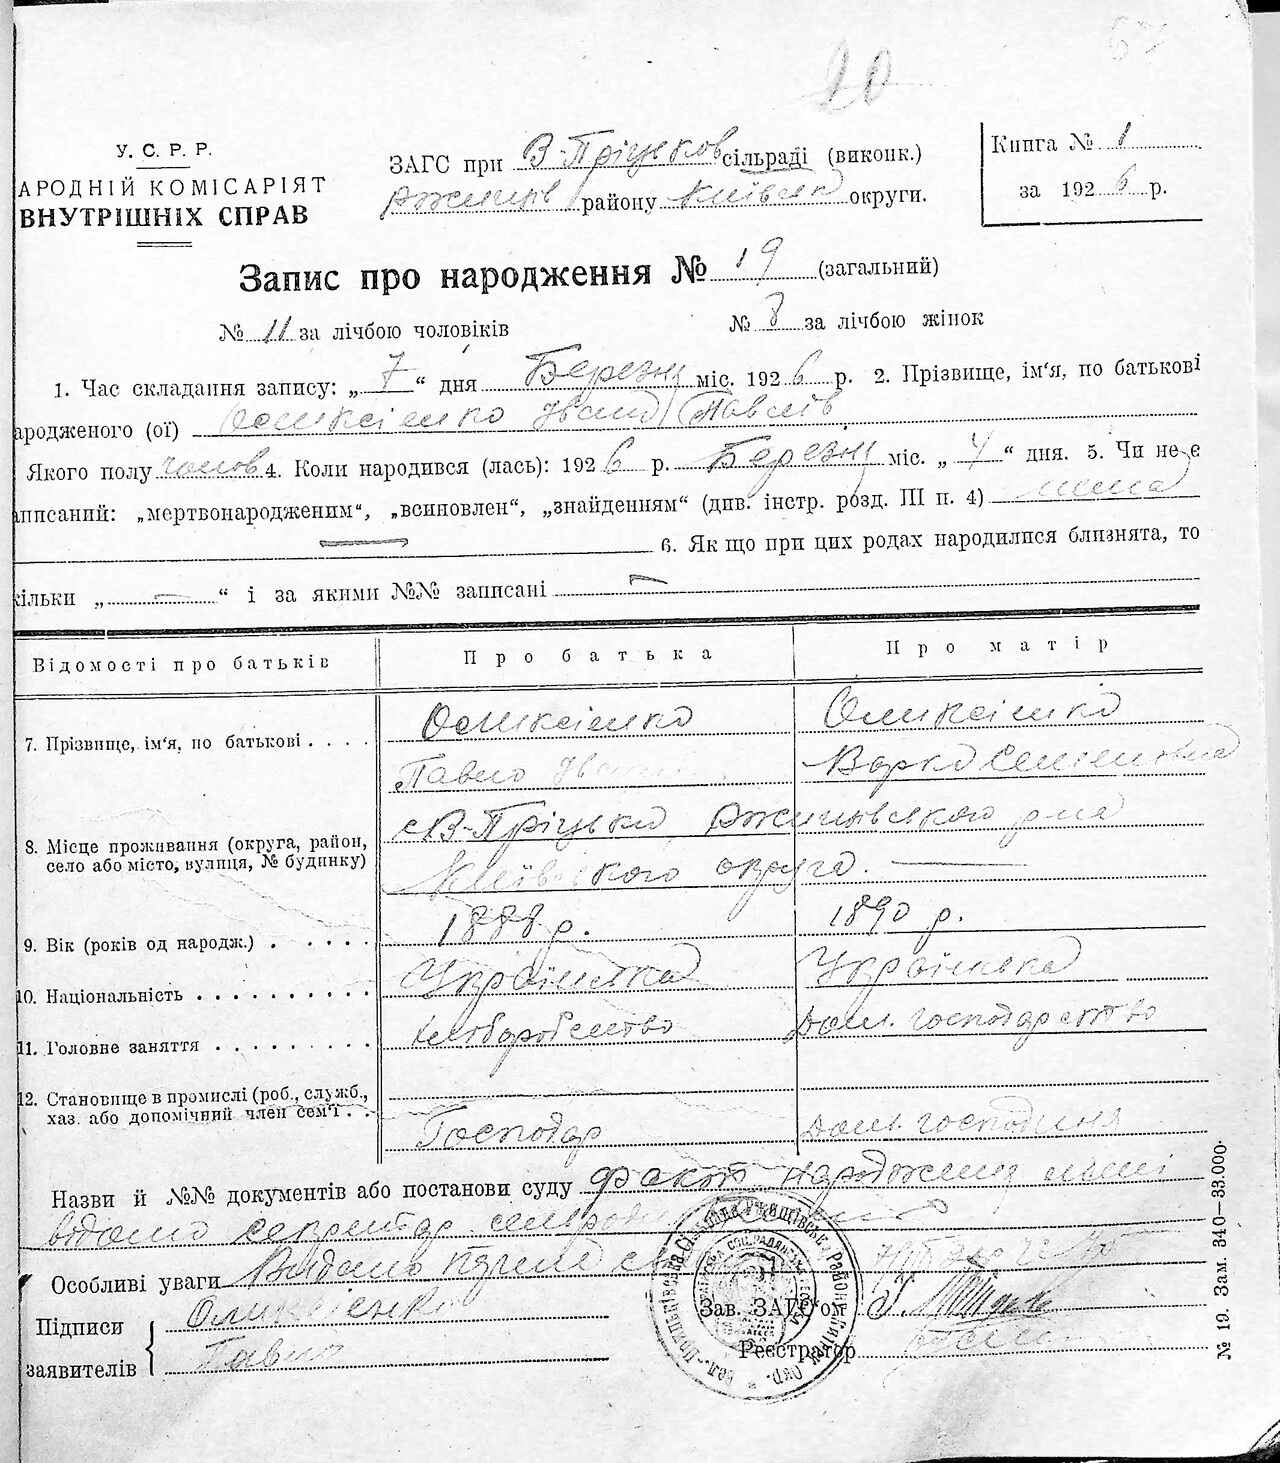 57
20
У. С. Р. Р.
АРОДНІЙ КОМІСАРІЯТ
ВНУТРІШНІХ СПРАВ
ЗАГС при В-Пріцьков сільраді (виконк.)
Ржищів району Київськ округи.
Книга № 1
за 1926 р.
Запис про народження № 19 (загальний)
№ 11 за лічбою чоловіків № 8 за лічбою жінок
1. Час складання запису: „ 7 “ дня Березня міс. 1926 р. 2. Прізвище, ім'я, по батькові
ародженого (ої) Омиксієнко Іван Павлів
Якого полу чолов 4. Коли народився (лась): 1926 р. Березня міс. „ 4 “ дня. 5. Чи не є
аписаний: „мертвонародженим“, „всиновлен“, „знайденням“ (див. інстр. розд. III п. 4) нема
— 6. Як що при цих родах народилися близнята, то
кільки „ — “ і за якими №№ записані —
Відомості про батьків Про батька Про матір
7. Прізвище, ім'я, по батькові . . . . Омиксієнко Омиксієнко
Павло Варка Семеновна
8. Місце проживання (округа, район, село або місто, вулиця, № будинку) с В-Пріцьки Ржищівського р-на
Київського округа. —
9. Вік (років од народж.) . . . . . 1888 р. 1890 р.
10. Національність . . . . . . . . . . Українська Українка
11. Головне заняття . . . . . . . . . Хліборобство Дом. господарство
12. Становище в промислі (роб., служб.,
хаз. або допомічний член сем'ї . . Господар Дом. господиня
Назви й №№ документів або постанови суду факт народження мені
відомо секретар сельради
Особливі уваги Видано
Підписи Омиксієнко Зав. ЗАГС'ом
заявителів Павло Реєстратор
№ 19. Зам. 340—33.000.